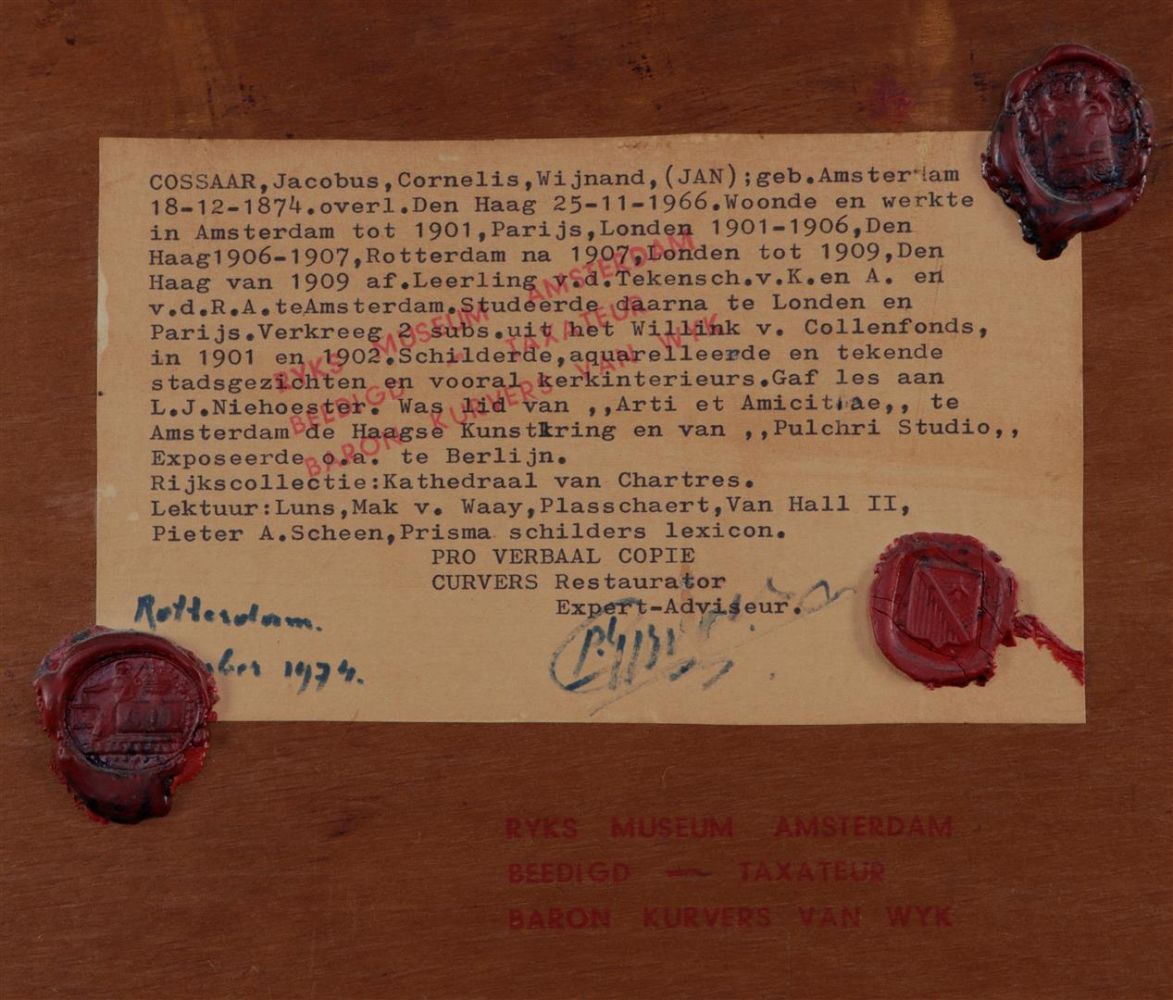 COSSAAR,Jacobus,Cornelis,Wijnand,(JAN);geb.Amsterdam
18-12-1874.overl.Den Haag 25-11-1966.Woonde en werkte
in Amsterdam tot 1901,Parijs,Londen 1901-1906,Den
Haag1906-1907,Rotterdam na 1907,Londen tot 1909,Den
Haag van 1909 af.Leerling v.d.Tekensch.v.K.en A. en
v.d.R.A.teAmsterdam.Studeerde daarna te Londen en
Parijs.Verkreeg 2 subs.uit het Willink v. Collenfonds,
in 1901 en 1902.Schilderde,aquarelleerde en tekende
stadsgezichten en vooral kerkinterieurs.Gaf les aan
L.J.Niehoester. Was lid van ,,Arti et Amicitiae,, te
Amsterdam de Haagse Kunstkring en van ,,Pulchri Studio,,
Exposeerde o.a. te Berlijn.
Rijkscollectie:Kathedraal van Chartres.
Lektuur:Luns,Mak v. Waay,Plasschaert,Van Hall II,
Pieter A.Scheen,Prisma schilders lexicon.
PRO VERBAAL COPIE
CURVERS Restaurator
Expert-Adviseur.
Rotterdam.
1974.
RYKS MUSEUM AMSTERDAM
BEEDIGD — TAXATEUR
BARON KURVERS VAN WYK
RYKS MUSEUM AMSTERDAM
BEEDIGD — TAXATEUR
BARON KURVERS VAN WYK